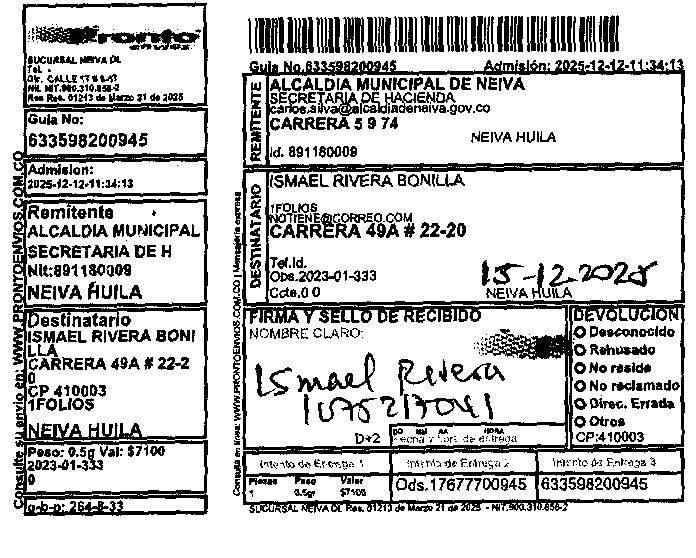 Pronto
envios
SUCURSAL NEIVA DL
Tel. -
Dir. CALLE 17 # 5-47
Nit. NIT.900.310.856-2
Res Res. 01213 de Marzo 21 de 2025
Guia No:
633598200945
Admision:
2025-12-12-11:34:13
Remitente
ALCALDIA MUNICIPAL
SECRETARIA DE H
Nit:891180009
NEIVA HUILA
Destinatario
ISMAEL RIVERA BONI
LLA
CARRERA 49A # 22-2
0
CP 410003
1FOLIOS
NEIVA HUILA
Peso: 0.5g Val: $7100
2023-01-333
0
g-b-p: 264-8-33
Consulte su envio en: WWW.PRONTOENVIOS.COM.CO
Guia No.633598200945 Admisión: 2025-12-12-11:34:13
REMITENTE
ALCALDIA MUNICIPAL DE NEIVA
SECRETARIA DE HACIENDA
carlos.silva@alcaldianeiva.gov.co
CARRERA 5 9 74
NEIVA HUILA
Id. 891180009
DESTINATARIO
ISMAEL RIVERA BONILLA
1FOLIOS
NOTIENE@CORREO.COM
CARRERA 49A # 22-20
Tel.Id.
Obs.2023-01-333
15-12-2025
Ccte.0 0
NEIVA HUILA
FIRMA Y SELLO DE RECIBIDO
NOMBRE CLARO:
Ismael Rivera
1075217041
D+2
DD MM AA HORA
Fecha y hora de entrega
DEVOLUCION
Desconocido
Rehusado
No reside
No reclamado
Direc. Errada
Otros
CP:410003
Intento de Entrega 1 Intento de Entrega 2 Intento de Entrega 3
Piezas Peso Valor
1 0.5gr $7100
Ods.17677700945
633598200945
SUCURSAL NEIVA DL Res. 01213 de Marzo 21 de 2025 - NIT.900.310.856-2
Consulte en linea: WWW.PRONTOENVIOS.COM.CO | Mensajeria expresa